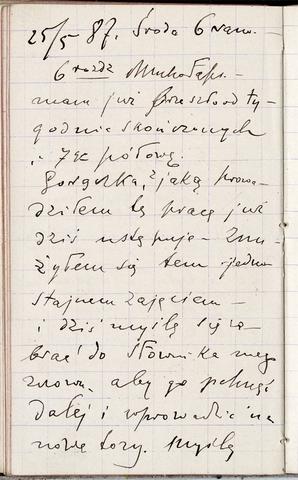 25/5 87. Środa 6 rano.
6 rozdz Muchołap. –
mam już przeszło od ty-
godnia skończonych
i 7ec połowę.
Gorączka, z jaką prowa-
dziłem tę pracę już
dziś ustępuje – Znu-
żyłem się tem jedno
stajnem zajęciem –
i dziś myślę się za
brać do słownika mego
znowu, aby go pchnąć
dalej i wprowadzić na
nowe tory. Myślę